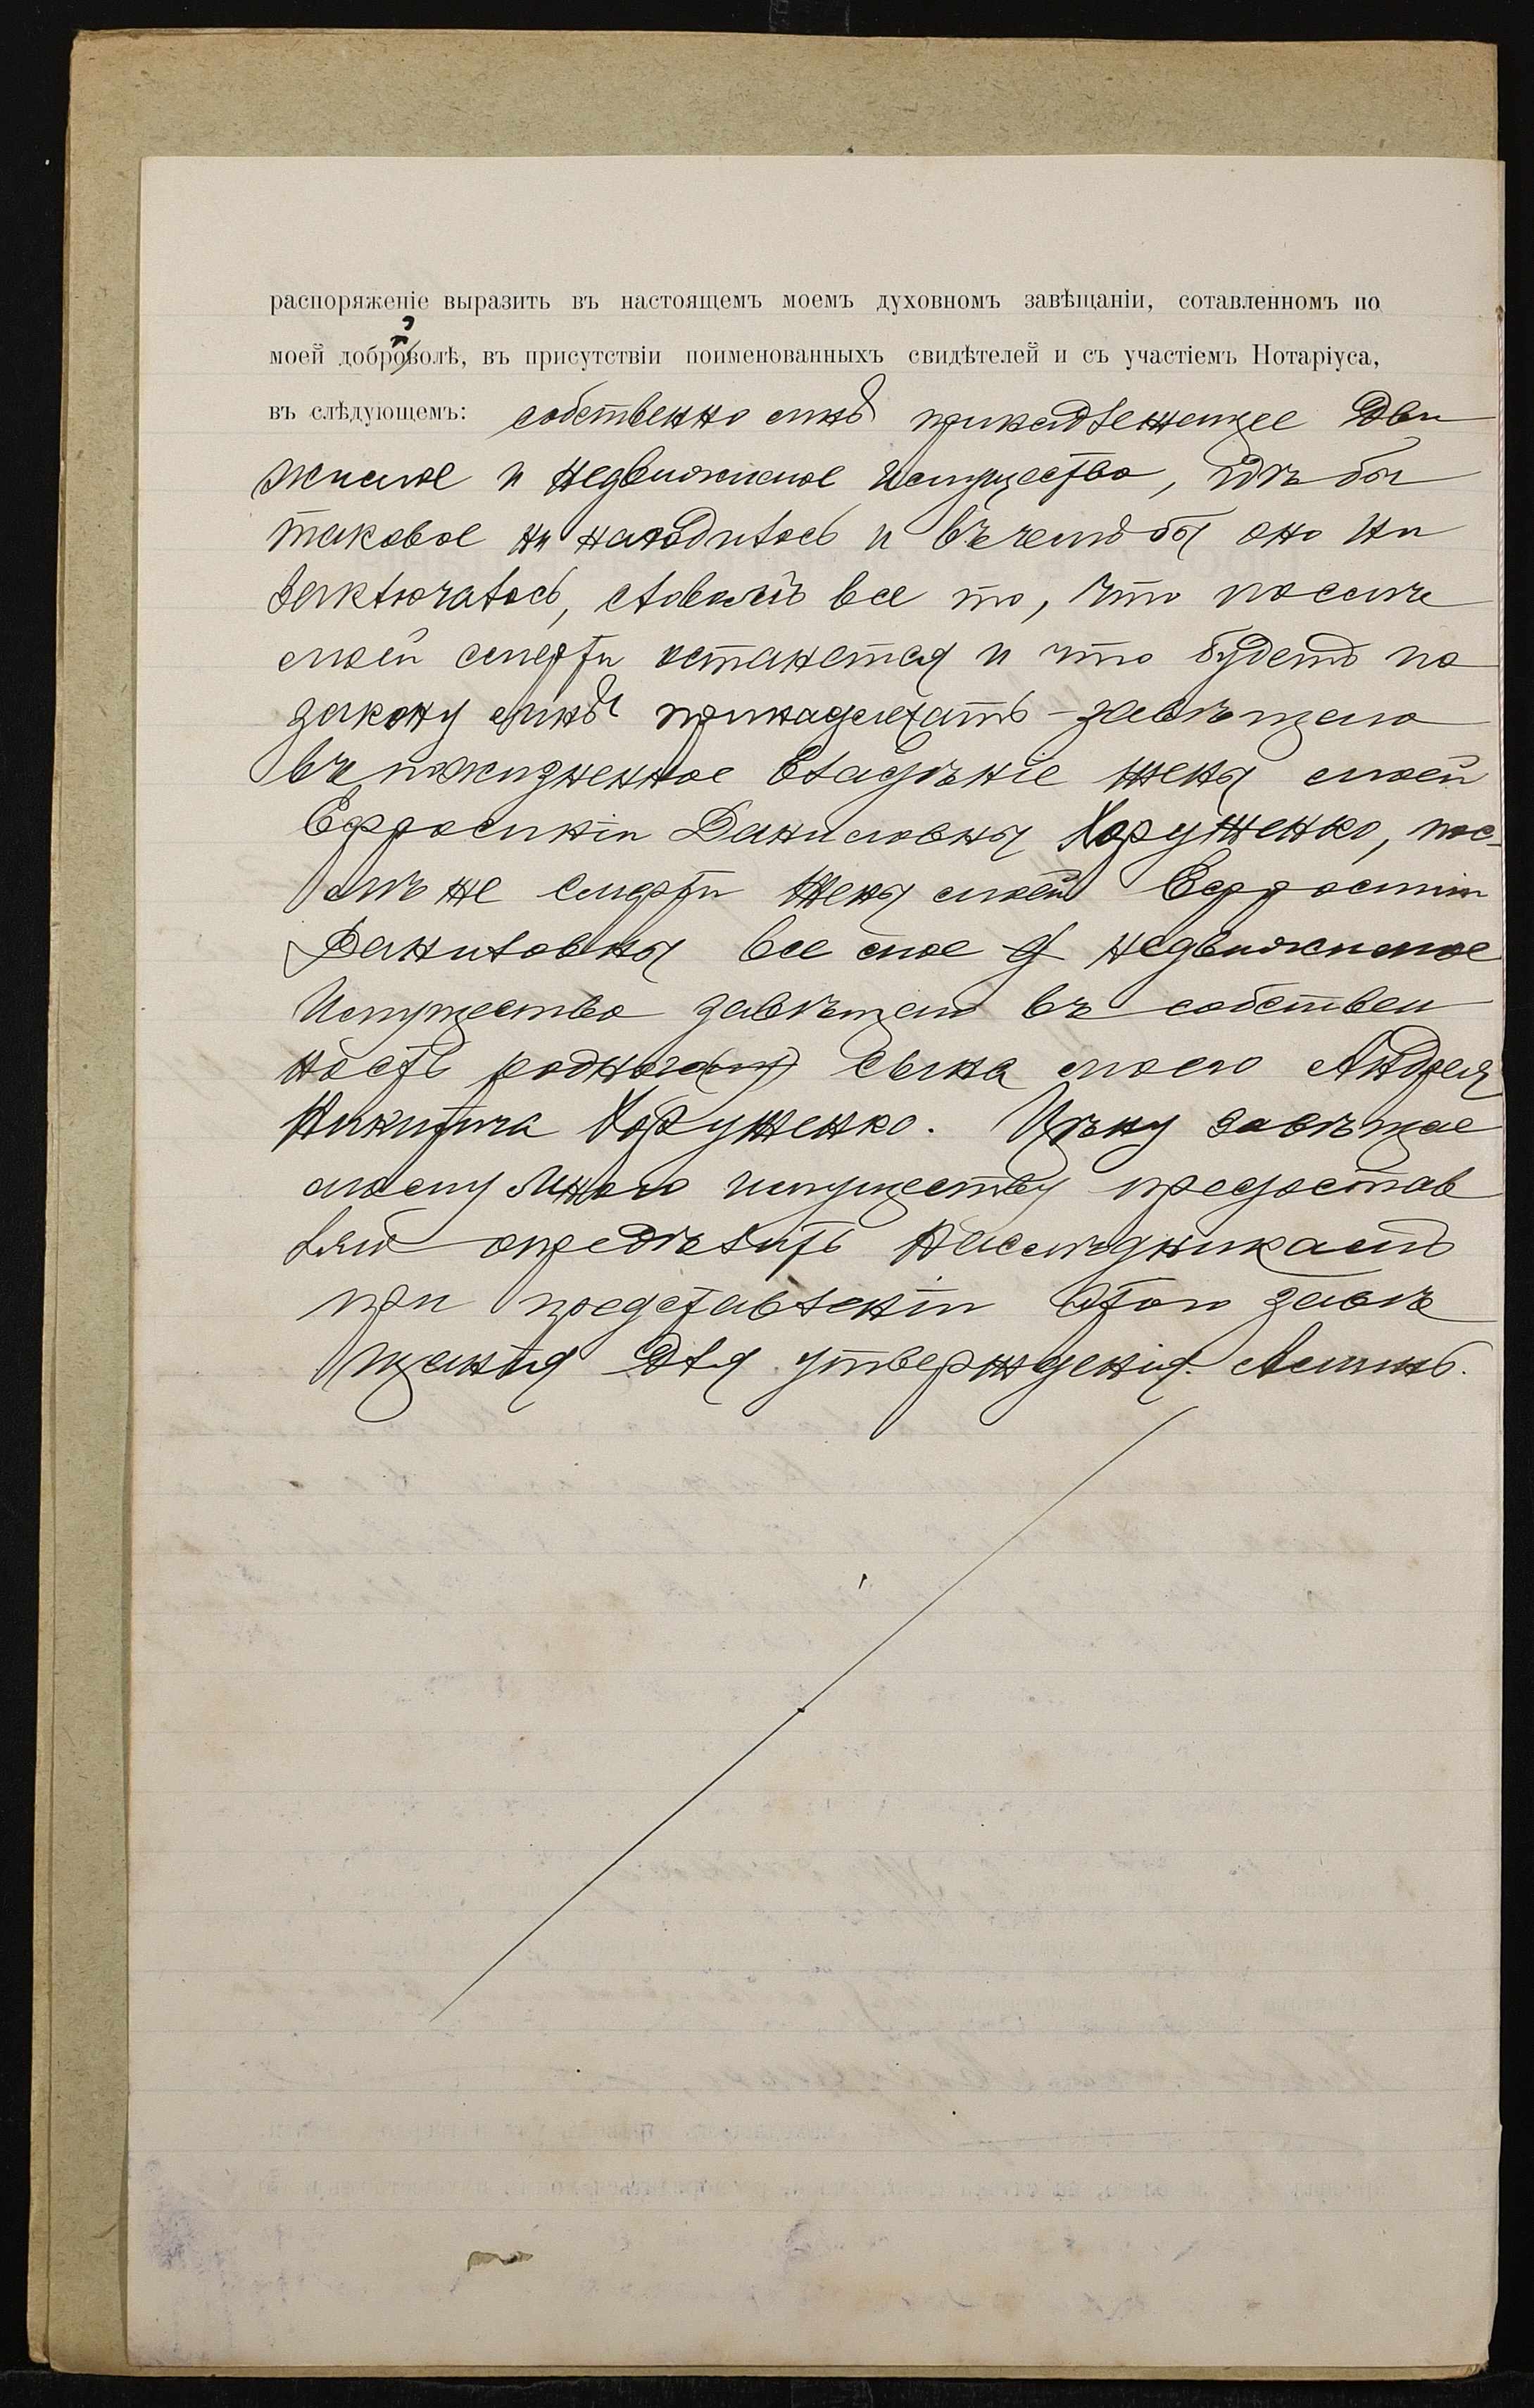 распоряженіе выразить въ настоящемъ моемъ духовномъ завѣщаніи, сотавленномъ по
моей доброволѣ, въ присутствіи поименованныхъ свидѣтелей и съ участіемъ Нотаріуса,
въ слѣдующемъ: собственно мнѣ принадлежащее дви
жимое и недвижимое имущество, гдѣ бы
таковое ни находилось и въ чемъ бы оно ни
заключалось, словомъ все то, что послѣ
моей смерти останется и что будетъ по
закону мнѣ принадлежать - завѣщаю
въ пожизненное владѣніе жены моей
Ефросиніи Даниловны Хоруженко, пос-
лѣ же смерти жены моей Ефросиніи
Даниловны все мое недвижимое
имущество завѣщаю въ собствен
ность родного сына моего Андрея
Никитича Хоруженко. Цѣну завѣщае
мому мною имуществу предостав
ляю опредѣлить наслѣдникамъ
при представленіи этого завѣ
щанія для утвержденія. Аминь.